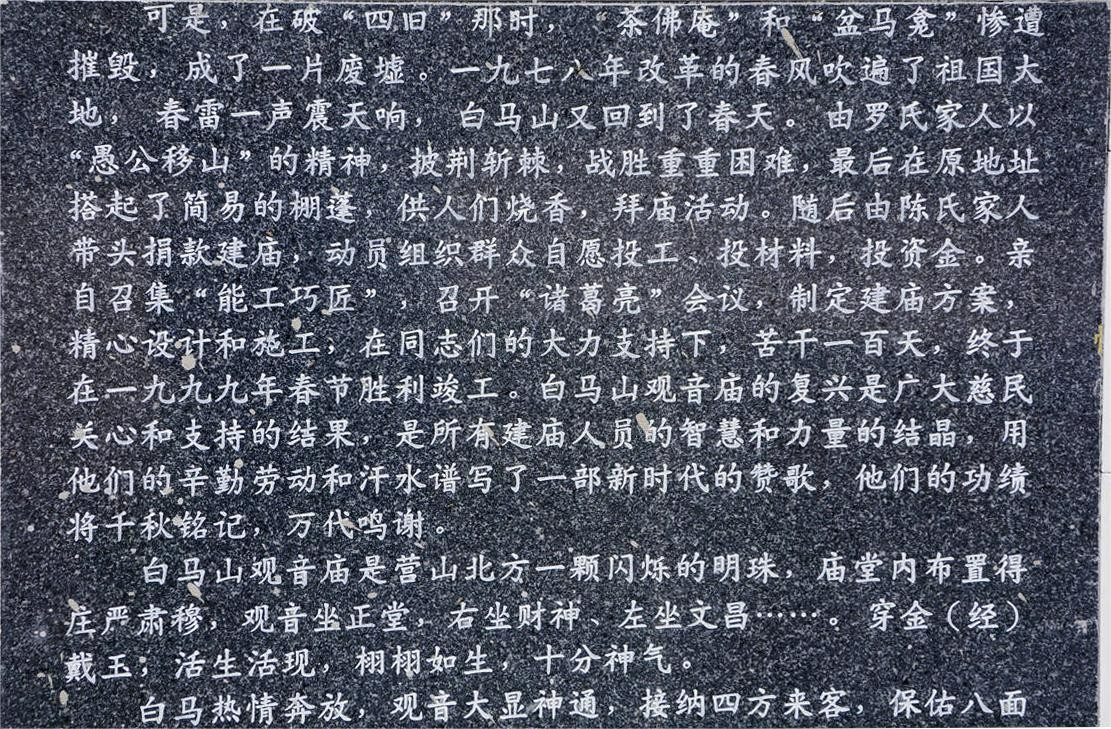 可是，在破“四旧”那时，“茶佛庵”和“盆马龛”惨遭
摧毁，成了一片废墟。一九七八年改革的春风吹遍了祖国大
地，春雷一声震天响，白马山又回到了春天。由罗氏家人以
“愚公移山”的精神，披荆斩棘，战胜重重困难，最后在原地址
搭起了简易的棚蓬，供人们烧香，拜庙活动。随后由陈氏家人
带头捐款建庙，动员组织群众自愿投工、投材料，投资金。亲
自召集“能工巧匠”，召开“诸葛亮”会议，制定建庙方案，
精心设计和施工，在同志们的大力支持下，苦干一百天，终于
在一九九九年春节胜利竣工。白马山观音庙的复兴是广大慈民
关心和支持的结果，是所有建庙人员的智慧和力量的结晶，用
他们的辛勤劳动和汗水谱写了一部新时代的赞歌，他们的功绩
将千秋铭记，万代鸣谢。
白马山观音庙是营山北方一颗闪烁的明珠，庙堂内布置得
庄严肃穆，观音坐正堂，右坐财神、左坐文昌……。穿金（经）
戴玉；活生活现，栩栩如生，十分神气。
白马热情奔放，观音大显神通，接纳四方来客，保佑八面